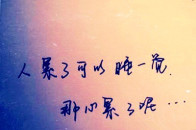 人累了可以睡一觉，
那心累了呢…